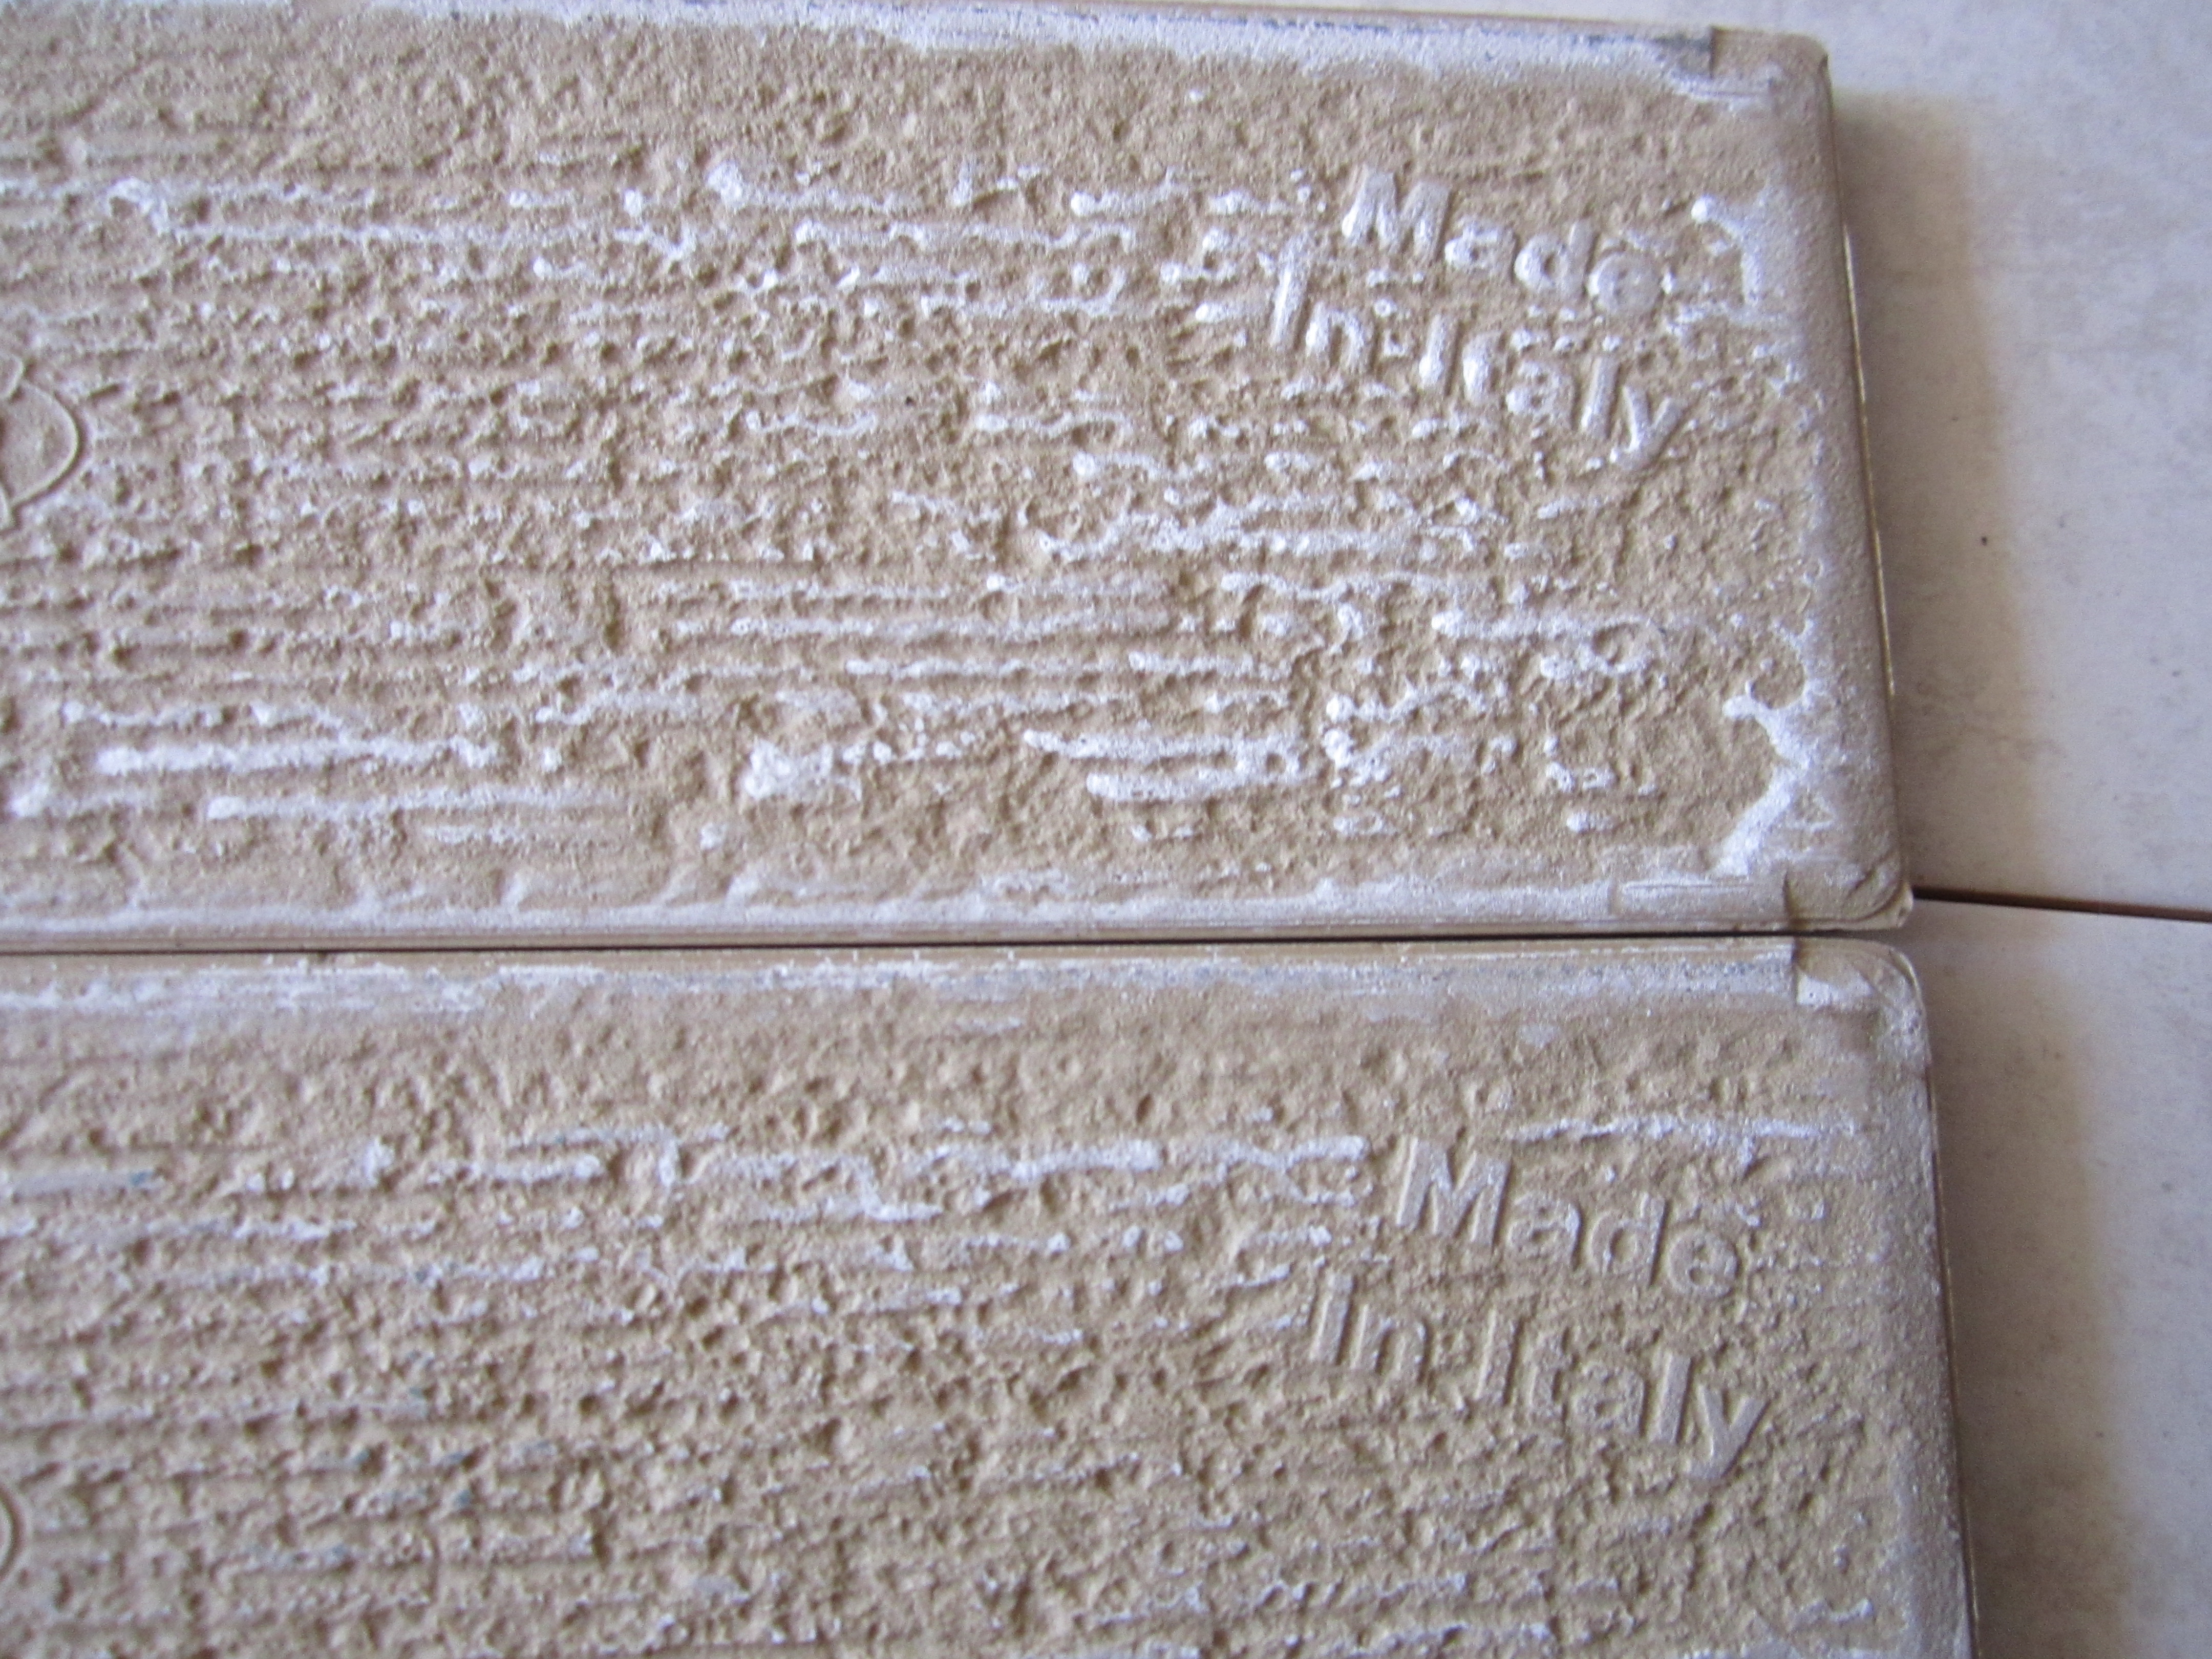 Made
In Italy
Made
In Italy